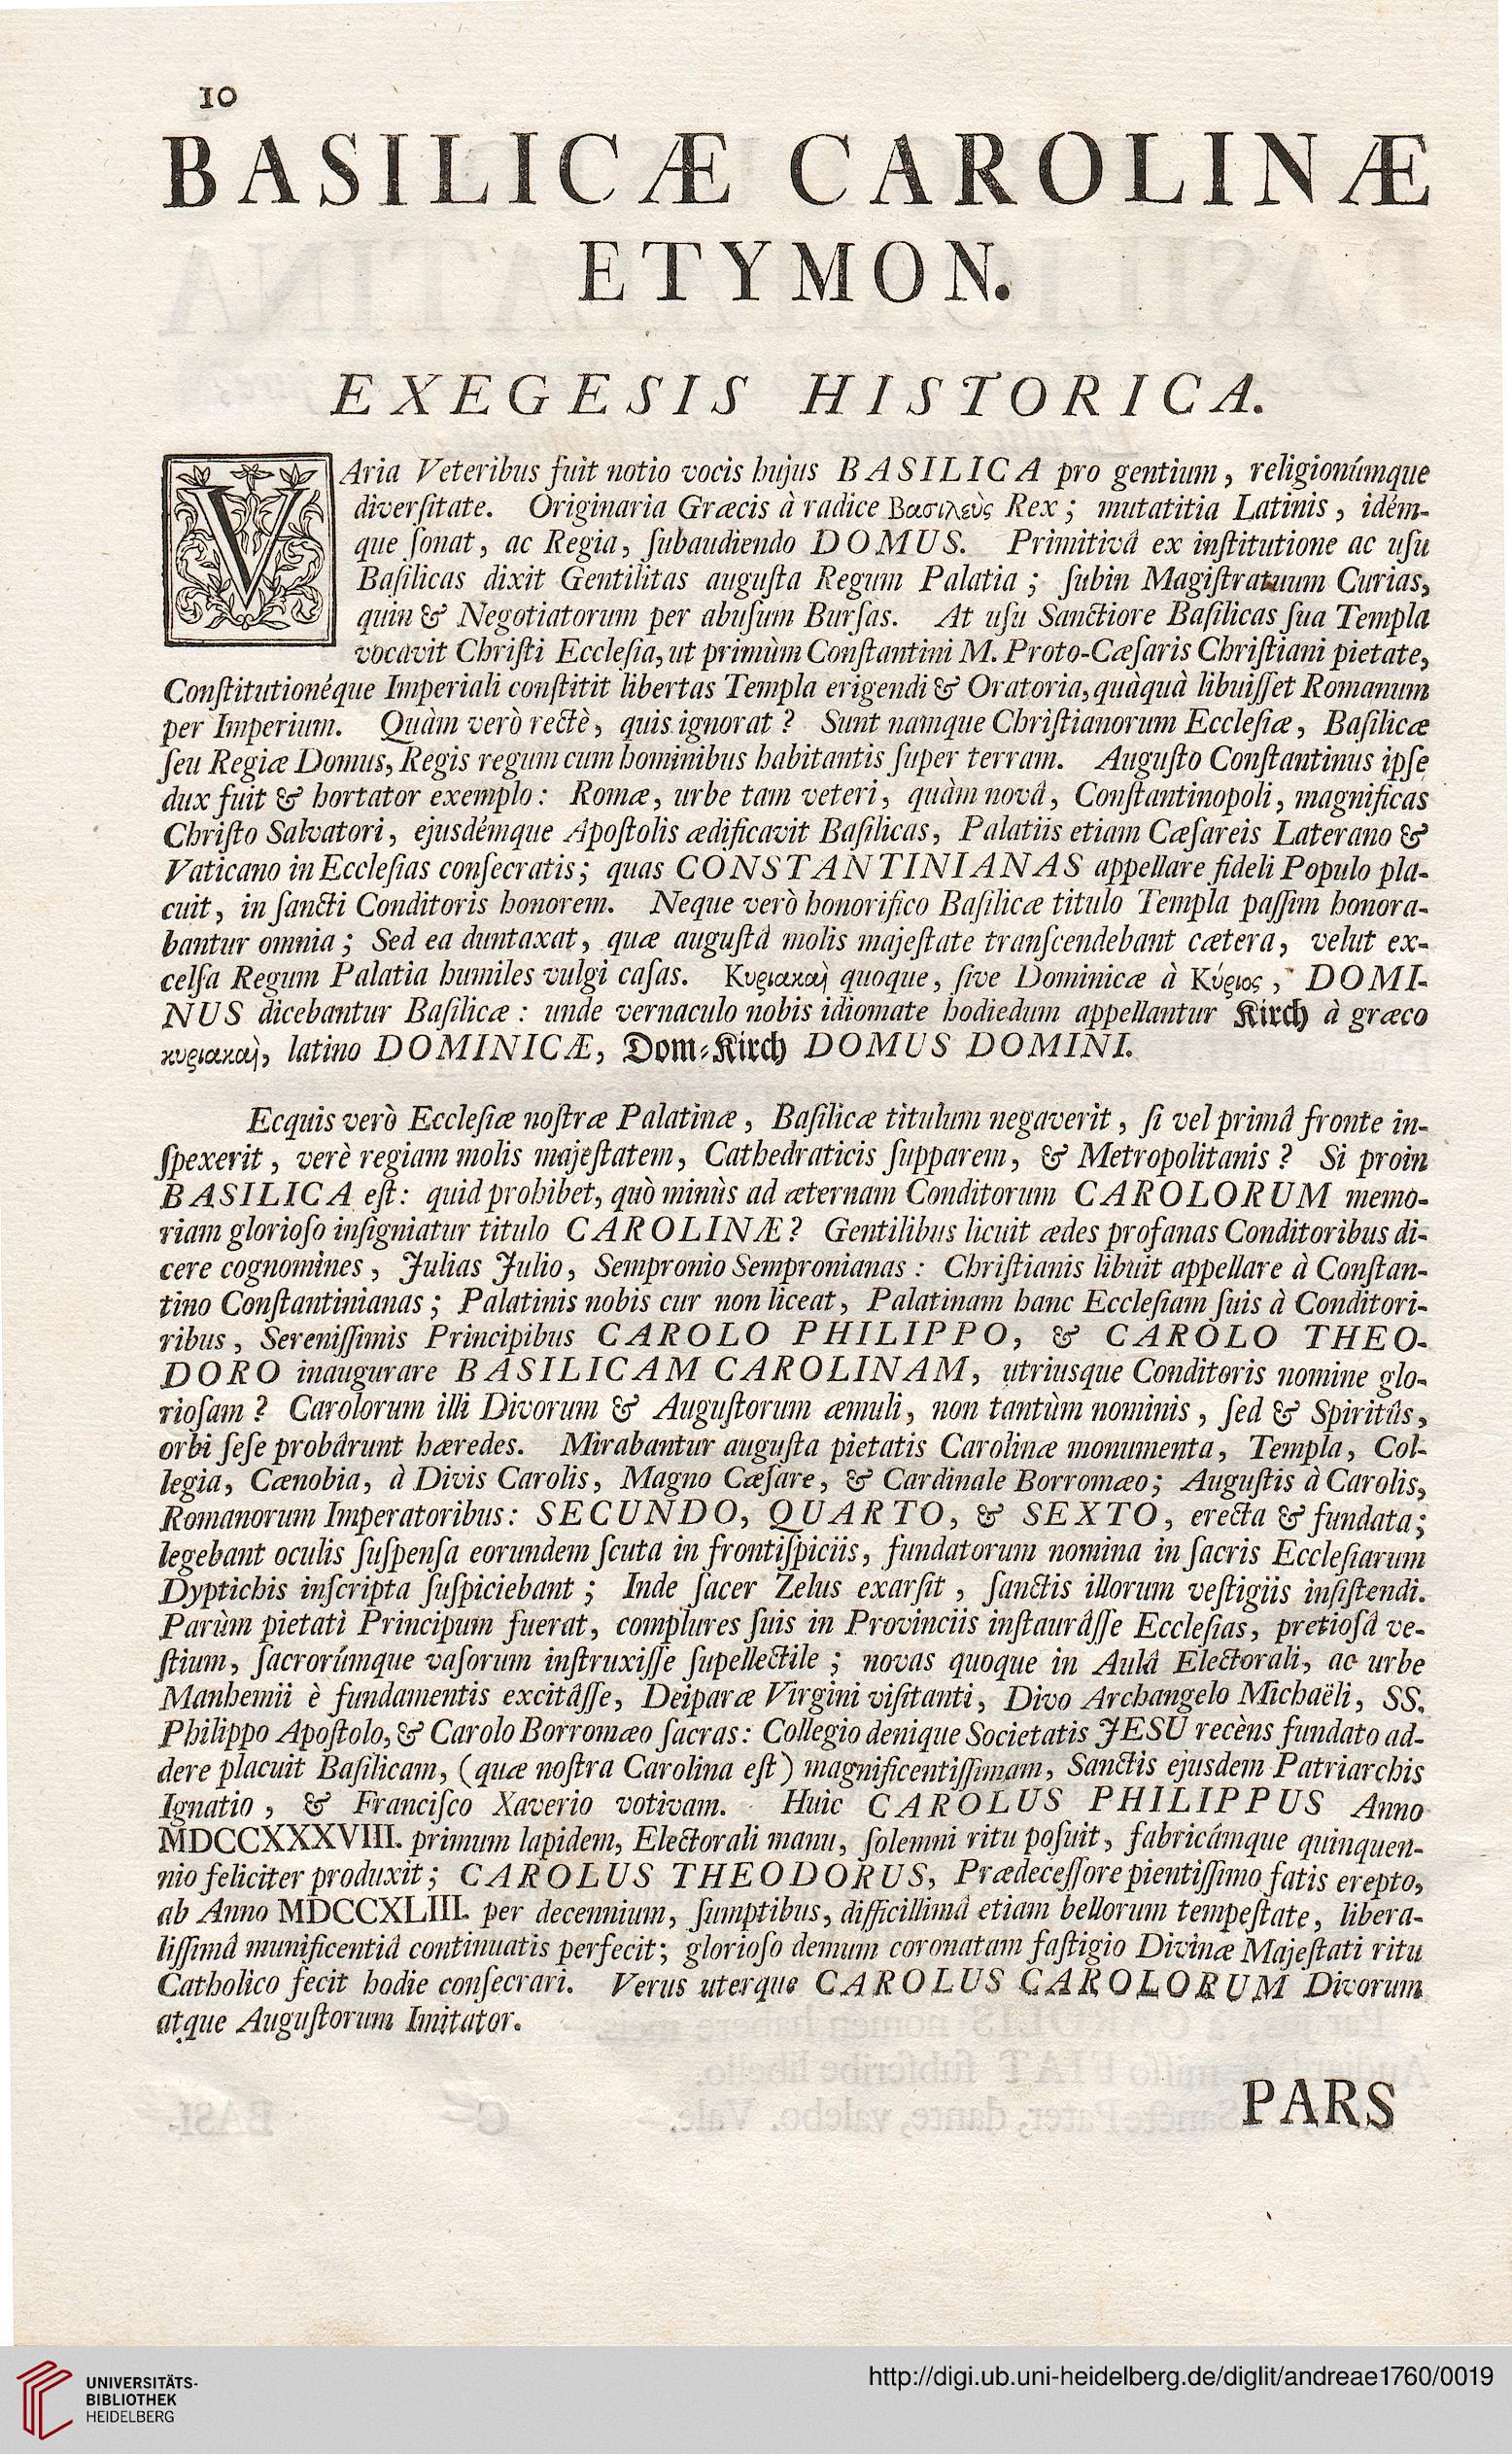 10
BASILICÆ CAROLINÆ
ETYMON.
EXEGESIS HISTORICA.
VAria Veteribus fuit notio vocis hujus BASILICA pro gentium, religionúmque
diverſitate. Originaria Græcis à radice Βασιλεὺς Rex; mutatitia Latinis, idém-
que ſonat, ac Regia, ſubaudiendo DOMUS. Primitivâ ex inſtitutione ac uſu
Baſilicas dixit Gentilitas auguſta Regum Palatia; ſubin Magiſtratuum Curias,
quin & Negotiatorum per abuſum Burſas. At uſu Sanctiore Baſilicas ſua Templa
vocavit Chriſti Eccleſia, ut primùm Conſtantini M. Proto-Cæſaris Chriſtiani pietate,
Conſtitutionéque Imperiali conſtitit libertas Templa erigendi & Oratoria, quàquà libuiſſet Romanum
per Imperium. Quàm verò rectè, quis ignorat? Sunt namque Chriſtianorum Eccleſiæ, Baſilicæ
ſeu Regiæ Domus, Regis regum cum hominibus habitantis ſuper terram. Auguſto Conſtantinus ipſe
dux fuit & hortator exemplo: Romæ, urbe tam veteri, quàm novâ, Conſtantinopoli, magnificas
Chriſto Salvatori, ejusdémque Apoſtolis ædificavit Baſilicas, Palatiis etiam Cæſareis Laterano &
Vaticano in Eccleſias conſecratis; quas CONSTANTINIANAS appellare fideli Populo pla-
cuit, in ſancti Conditoris honorem. Neque verò honorifico Baſilicæ titulo Templa paſſim honora-
bantur omnia; Sed ea duntaxat, quæ auguſtâ molis majeſtate tranſcendebant cætera, velut ex-
celſa Regum Palatia humiles vulgi caſas. Κυριακαὶ quoque, ſive Dominicæ à Κύριος, DOMI-
NUS dicebantur Baſilicæ: unde vernaculo nobis idiomate hodiedum appellantur Kirch à græco
κυριακαὶ, latino DOMINICÆ, Dom-Kirch DOMUS DOMINI.
Ecquis verò Eccleſiæ noſtræ Palatinæ, Baſilicæ titulum negaverit, ſi vel primâ fronte in-
ſpexerit, verè regiam molis majeſtatem, Cathedraticis ſupparem, & Metropolitanis? Si proin
BASILICA eſt: quid prohibet, quò minùs ad æternam Conditorum CAROLORUM memo-
riam glorioſo inſigniatur titulo CAROLINÆ? Gentilibus licuit ædes profanas Conditoribus di-
cere cognomines, Julias Julio, Sempronio Sempronianas: Chriſtianis libuit appellare à Conſtan-
tino Conſtantinianas; Palatinis nobis cur non liceat, Palatinam hanc Eccleſiam ſuis à Conditori-
ribus, Sereniſſimis Principibus CAROLO PHILIPPO, & CAROLO THEO-
DORO inaugurare BASILICAM CAROLINAM, utriusque Conditoris nomine glo-
rioſam? Carolorum illi Divorum & Auguſtorum æmuli, non tantùm nominis, ſed & Spiritûs,
orbi ſeſe probârunt hæredes. Mirabantur auguſta pietatis Carolinæ monumenta, Templa, Col-
legia, Cænobia, à Divis Carolis, Magno Cæſare, & Cardinale Borromæo; Auguſtis à Carolis,
Romanorum Imperatoribus: SECUNDO, QUARTO, & SEXTO, erecta & fundata;
legebant oculis ſuſpenſa eorundem ſcuta in frontiſpiciis, fundatorum nomina in ſacris Eccleſiarum
Dyptichis inſcripta ſuſpiciebant; Inde ſacer Zelus exarſit, ſanctis illorum veſtigiis inſiſtendi.
Parùm pietati Principum fuerat, complures ſuis in Provinciis inſtaurâſſe Eccleſias, pretioſâ ve-
ſtium, ſacrorúmque vaſorum inſtruxiſſe ſupellectile; novas quoque in Aulâ Electorali, ac urbe
Manhemii è fundamentis excitâſſe, Deiparæ Virgini viſitanti, Divo Archangelo Michaëli, SS.
Philippo Apoſtolo, & Carolo Borromæo ſacras: Collegio denique Societatis JESU recèns fundato ad-
dere placuit Baſilicam, (quæ noſtra Carolina eſt) magnificentiſſimam, Sanctis ejusdem Patriarchis
Ignatio, & Franciſco Xaverio votivam. Huic CAROLUS PHILIPPUS Anno
MDCCXXXVIII. primum lapidem, Electorali manu, ſolemni ritu poſuit, fabricámque quinquen-
nio feliciter produxit; CAROLUS THEODORUS, Prædeceſſore pientiſſimo fatis erepto,
ab Anno MDCCXLIII. per decennium, ſumptibus, difficillimâ etiam bellorum tempeſtate, libera-
liſſimâ munificentiâ continuatis perfecit; glorioſo demum coronatam faſtigio Divinæ Majeſtati ritu
Catholico fecit hodie conſecrari. Verus uterque CAROLUS CAROLORUM Divorum
atque Auguſtorum Imitator.
PARS
UNIVERSITÄTS-
BIBLIOTHEK
HEIDELBERG
http://digi.ub.uni-heidelberg.de/diglit/andreae1760/0019